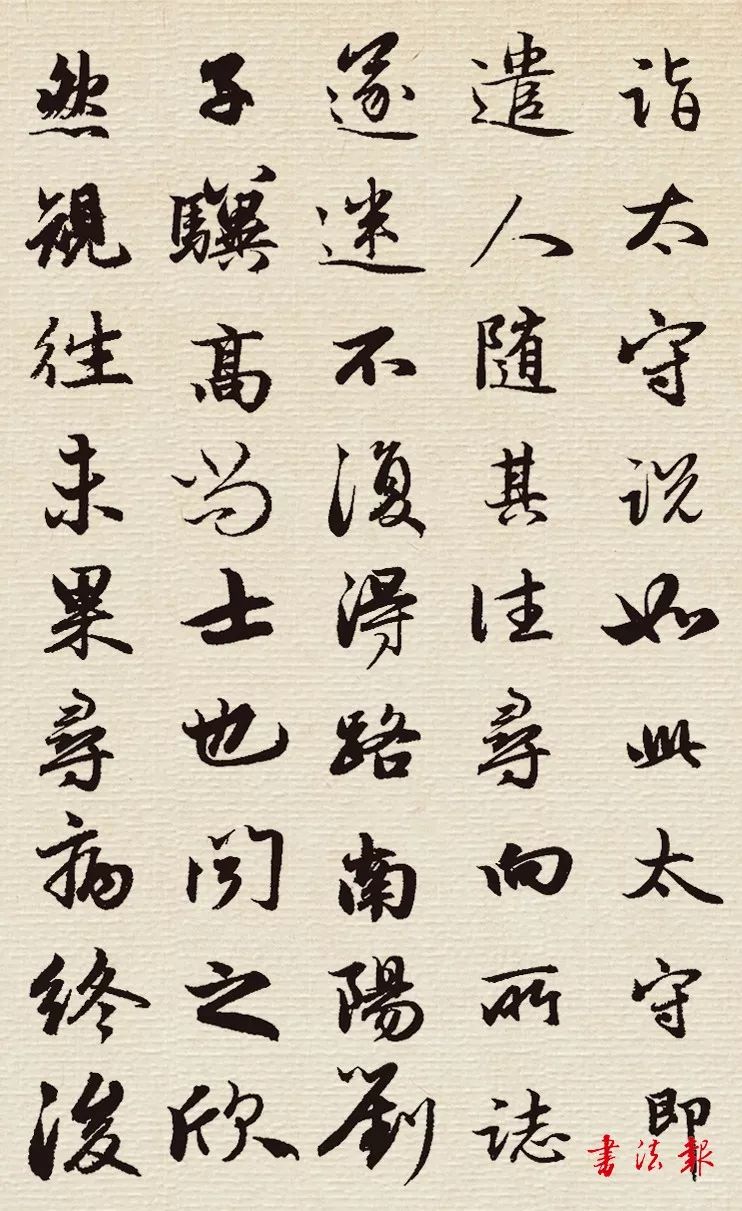 詣太守説如此太守即
遣人随其往尋向所誌
遂迷不復得路南陽劉
子驥高尚士也聞之欣
然覌往未果尋病終後
书法報